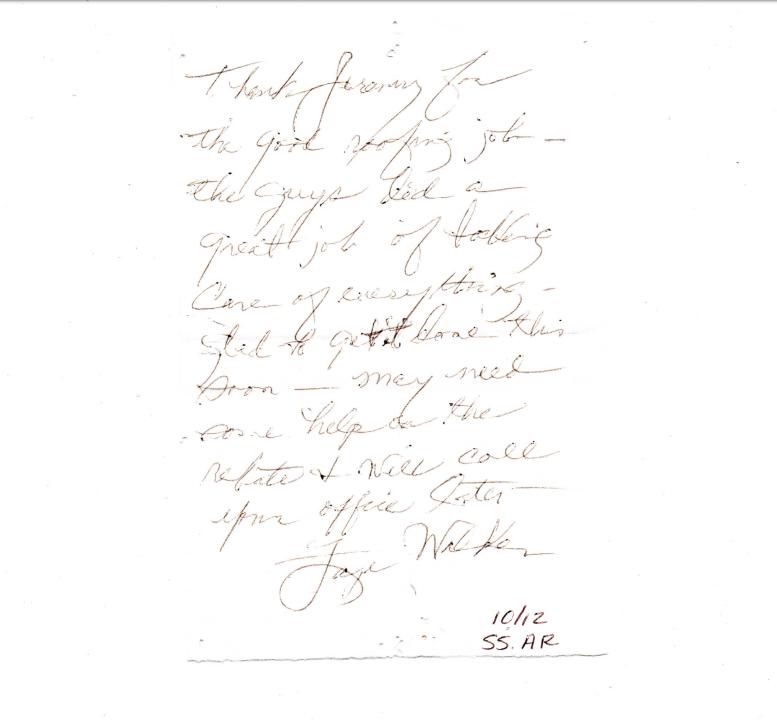 Thank Jeramy for
the good roofing job —
the guys did a
great job of taking
care of everything –
glad to get it done this
soon — may need
some help on the
rebate & will call
your office later —
Faye Walker
10/12
SS. AR